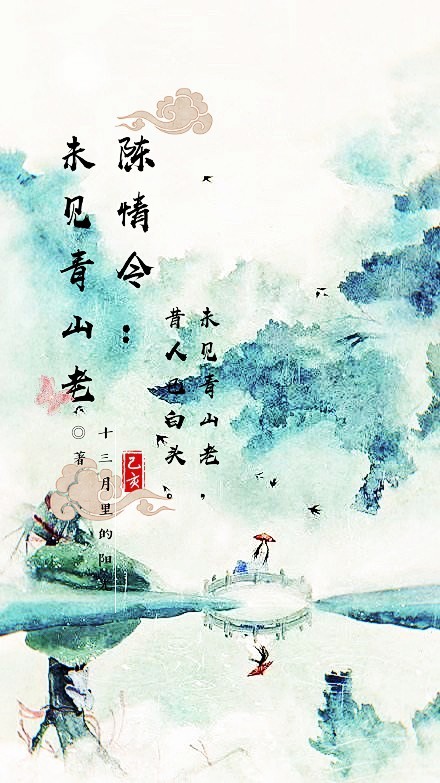 陈情令：
未见青山老
未见青山老，
昔人已白头。
己亥
十三月里的阳
◎著